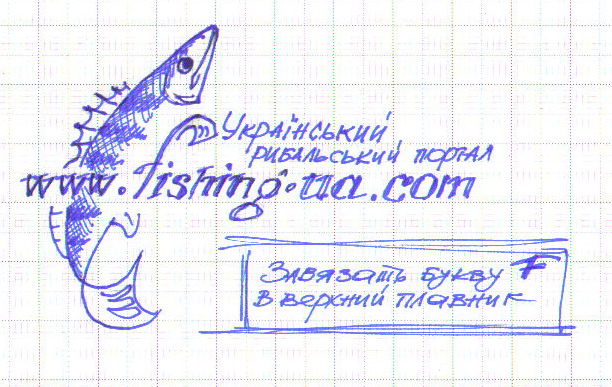 Український
рибальський портал
www.fishing.ua.com
Завязать букву F
в верхний плавник